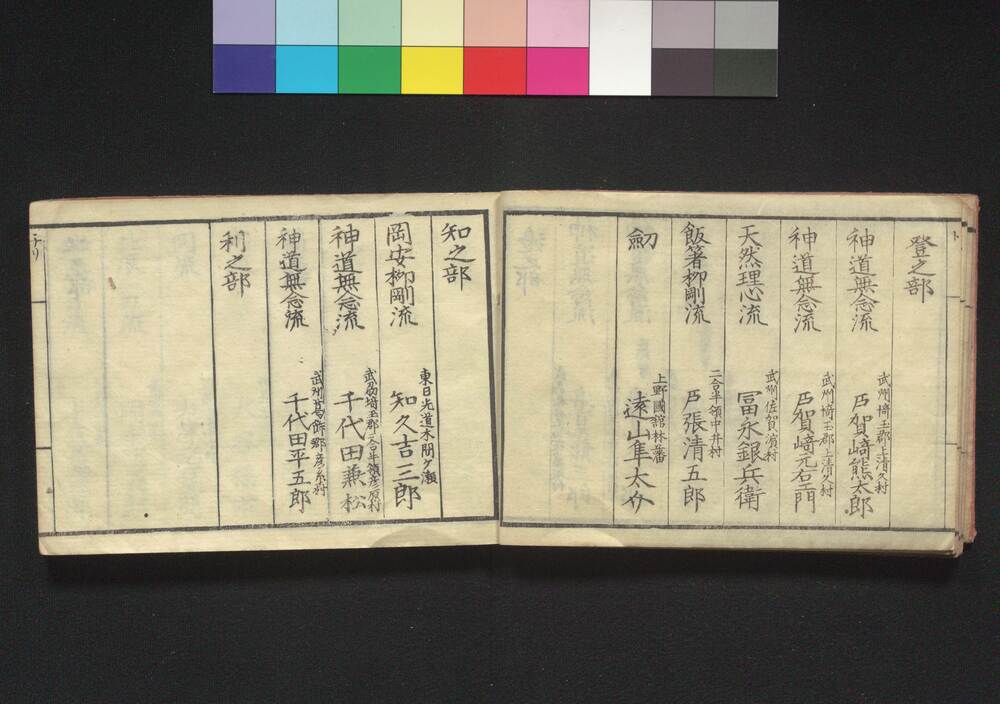 ト
登之部
神道無念流
武州埼玉郡上清久村
戸賀﨑熊太郎
神道無念流
武州埼玉郡上清久村
戸賀﨑元右エ門
天然理心流
武州佐賀濱村
冨永銀兵衛
飯箸柳剛流
二合半領中井村
戸張清五郎
劔
上野國舘林藩
遠山隼太
知之部
岡安柳剛流
東日光道木間夕瀬
知久吉三郎
神道無念流
武州埼玉郡二合半領彦原村
千代田兼松
神道無念流
武州葛飾郷彦糸村
千代田平五郎
利之部
チリ